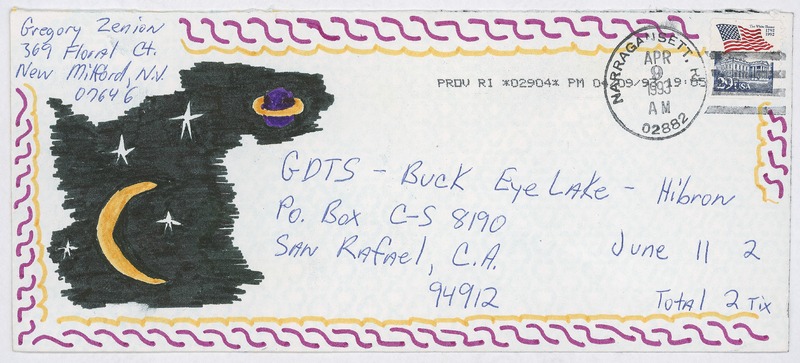 Gregory Zenion
369 Floral Ct.
New Milford, N.J.
07646
The White House
1792 1992
29 USA
NARRAGANSETT, RI
APR
9
1993
AM
02882
PROV RI *02904* PM 04/09/93 19:05
GDTS - Buck Eye Lake - Hibron
Po. Box C-S 8190
San Rafael, C.A.
94912
June 11 2
Total 2 Tix